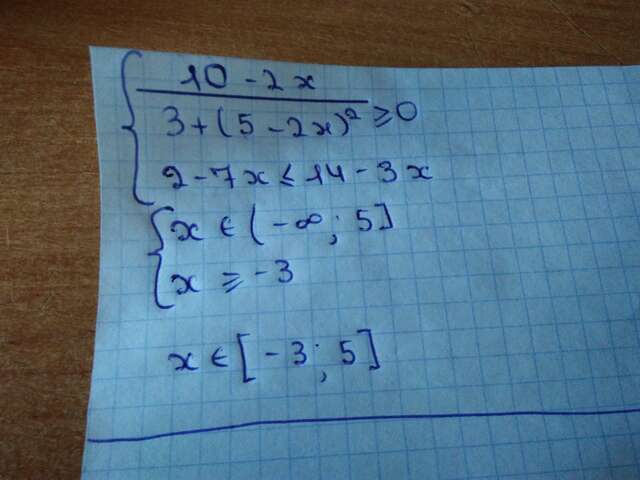 10 - 2x
3 + (5 - 2x)² ≥ 0
2 - 7x ≤ 14 - 3x
x ∈ (-∞; 5]
x ≥ -3
x ∈ [-3; 5]